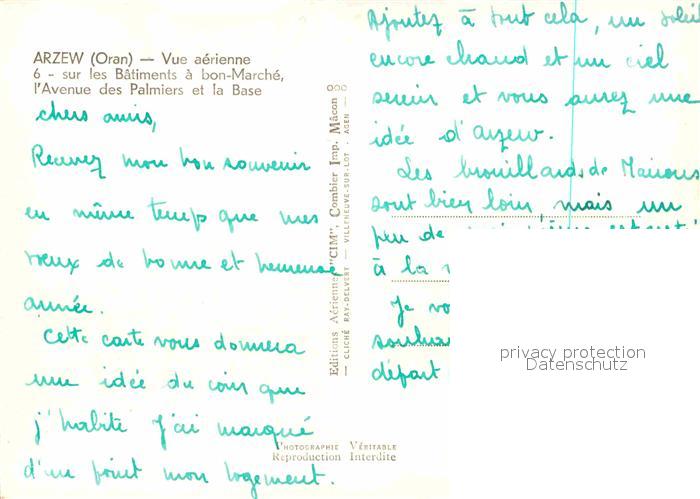 ARZEW (Oran) — Vue aérienne
6 - sur les Bâtiments à bon-Marché,
l'Avenue des Palmiers et la Base
chers amis,
Recevez mon bon souvenir
en même temps que mes
vœux de bonne et heureuse
année.
Cette carte vous donnera
une idée du coin que
j'habite J'ai marqué
d'un point mon logement.
Editions Aériennes "CIM", Combier Imp. Mâcon
CLICHÉ RAY-DELVERT — VILLENEUVE-SUR-LOT - AGEN —
PHOTOGRAPHIE VÉRITABLE
Reproduction Interdite
Ajoutez à tout cela, un soleil
encore chaud et un ciel
serein et vous aurez une
idée d'arzew.
Les brouillards de
sont bien loin, mais un
peu de
à la
Je vo
départ
privacy protection
Datenschutz